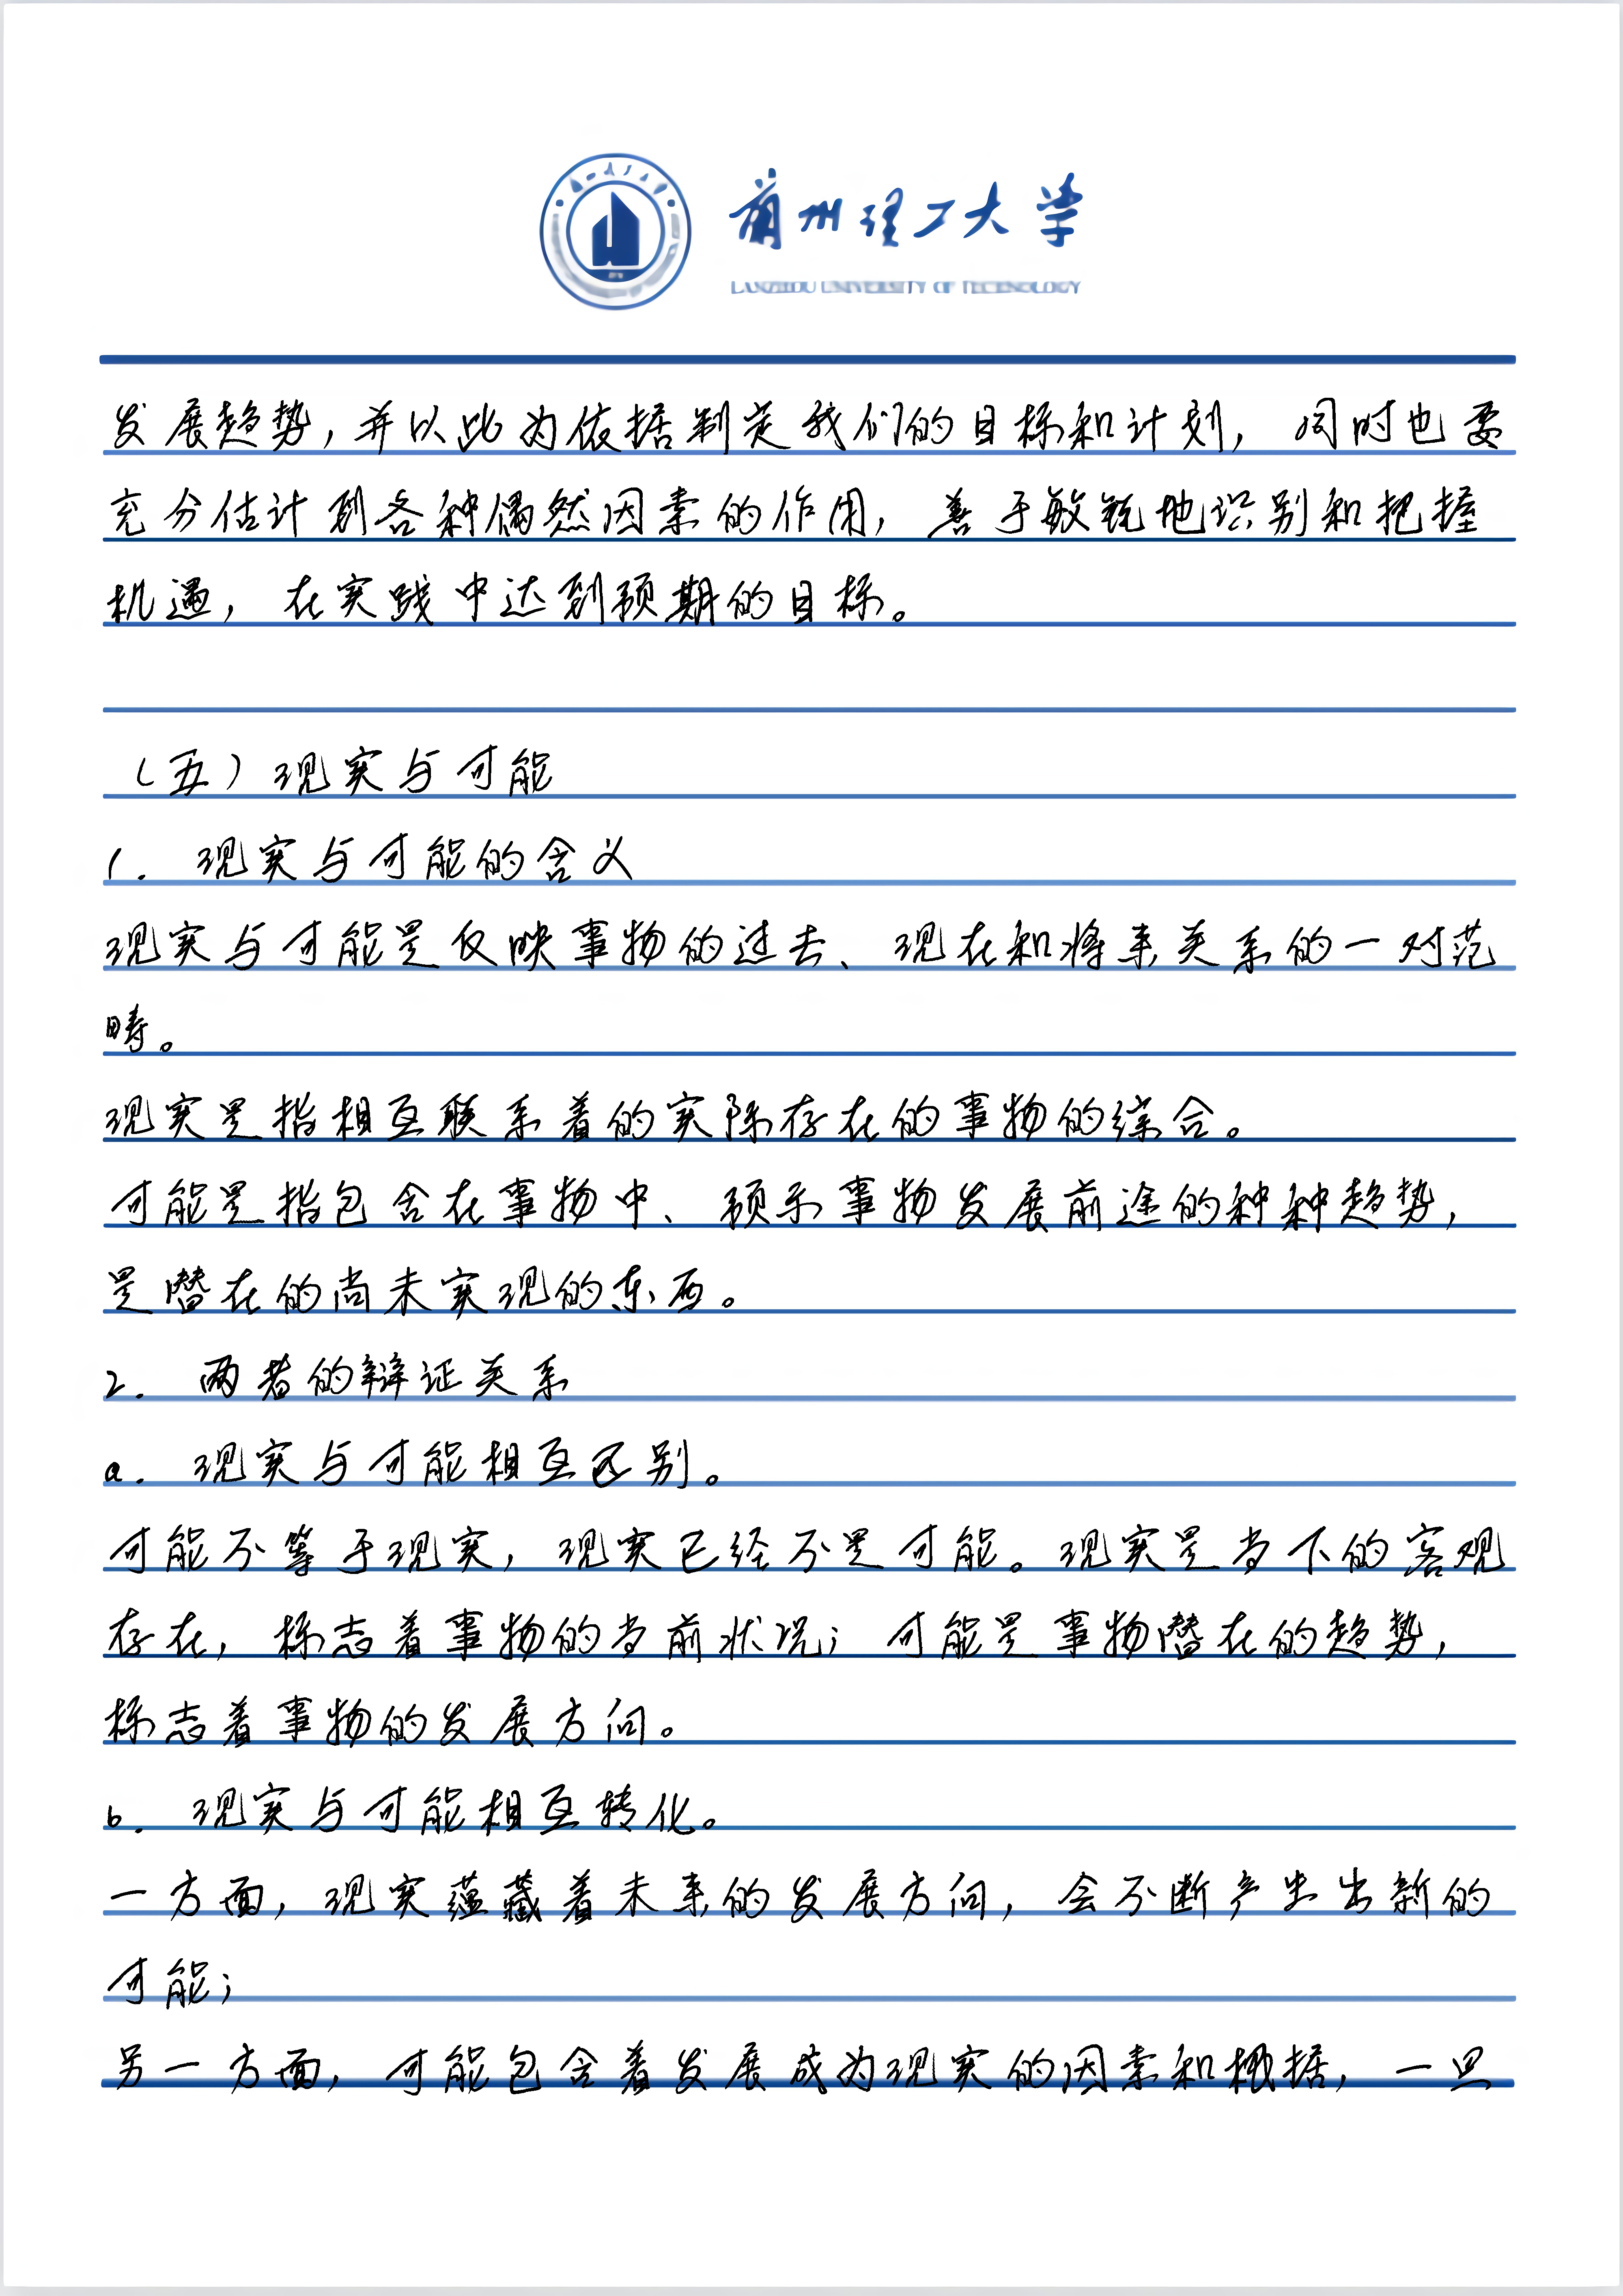 蘭州理工大学
LANZHOU UNIVERSITY OF TECHNOLOGY
发展趋势，并以此为依据制定我们的目标和计划，同时也要
充分估计到各种偶然因素的作用，善于敏锐地识别和把握
机遇，在实践中达到预期的目标。
（五）现实与可能
1. 现实与可能的含义
现实与可能是反映事物的过去、现在和将来关系的一对范
畴。
现实是指相互联系着的实际存在的事物的综合。
可能是指包含在事物中、预示事物发展前途的种种趋势，
是潜在的尚未实现的东西。
2. 两者的辩证关系
a. 现实与可能相互区别。
可能不等于现实，现实已经不是可能。现实是当下的客观
存在，标志着事物的当前状况；可能是事物潜在的趋势，
标志着事物的发展方向。
b. 现实与可能相互转化。
一方面，现实蕴藏着未来的发展方向，会不断产生出新的
可能；
另一方面，可能包含着发展成为现实的因素和根据，一旦